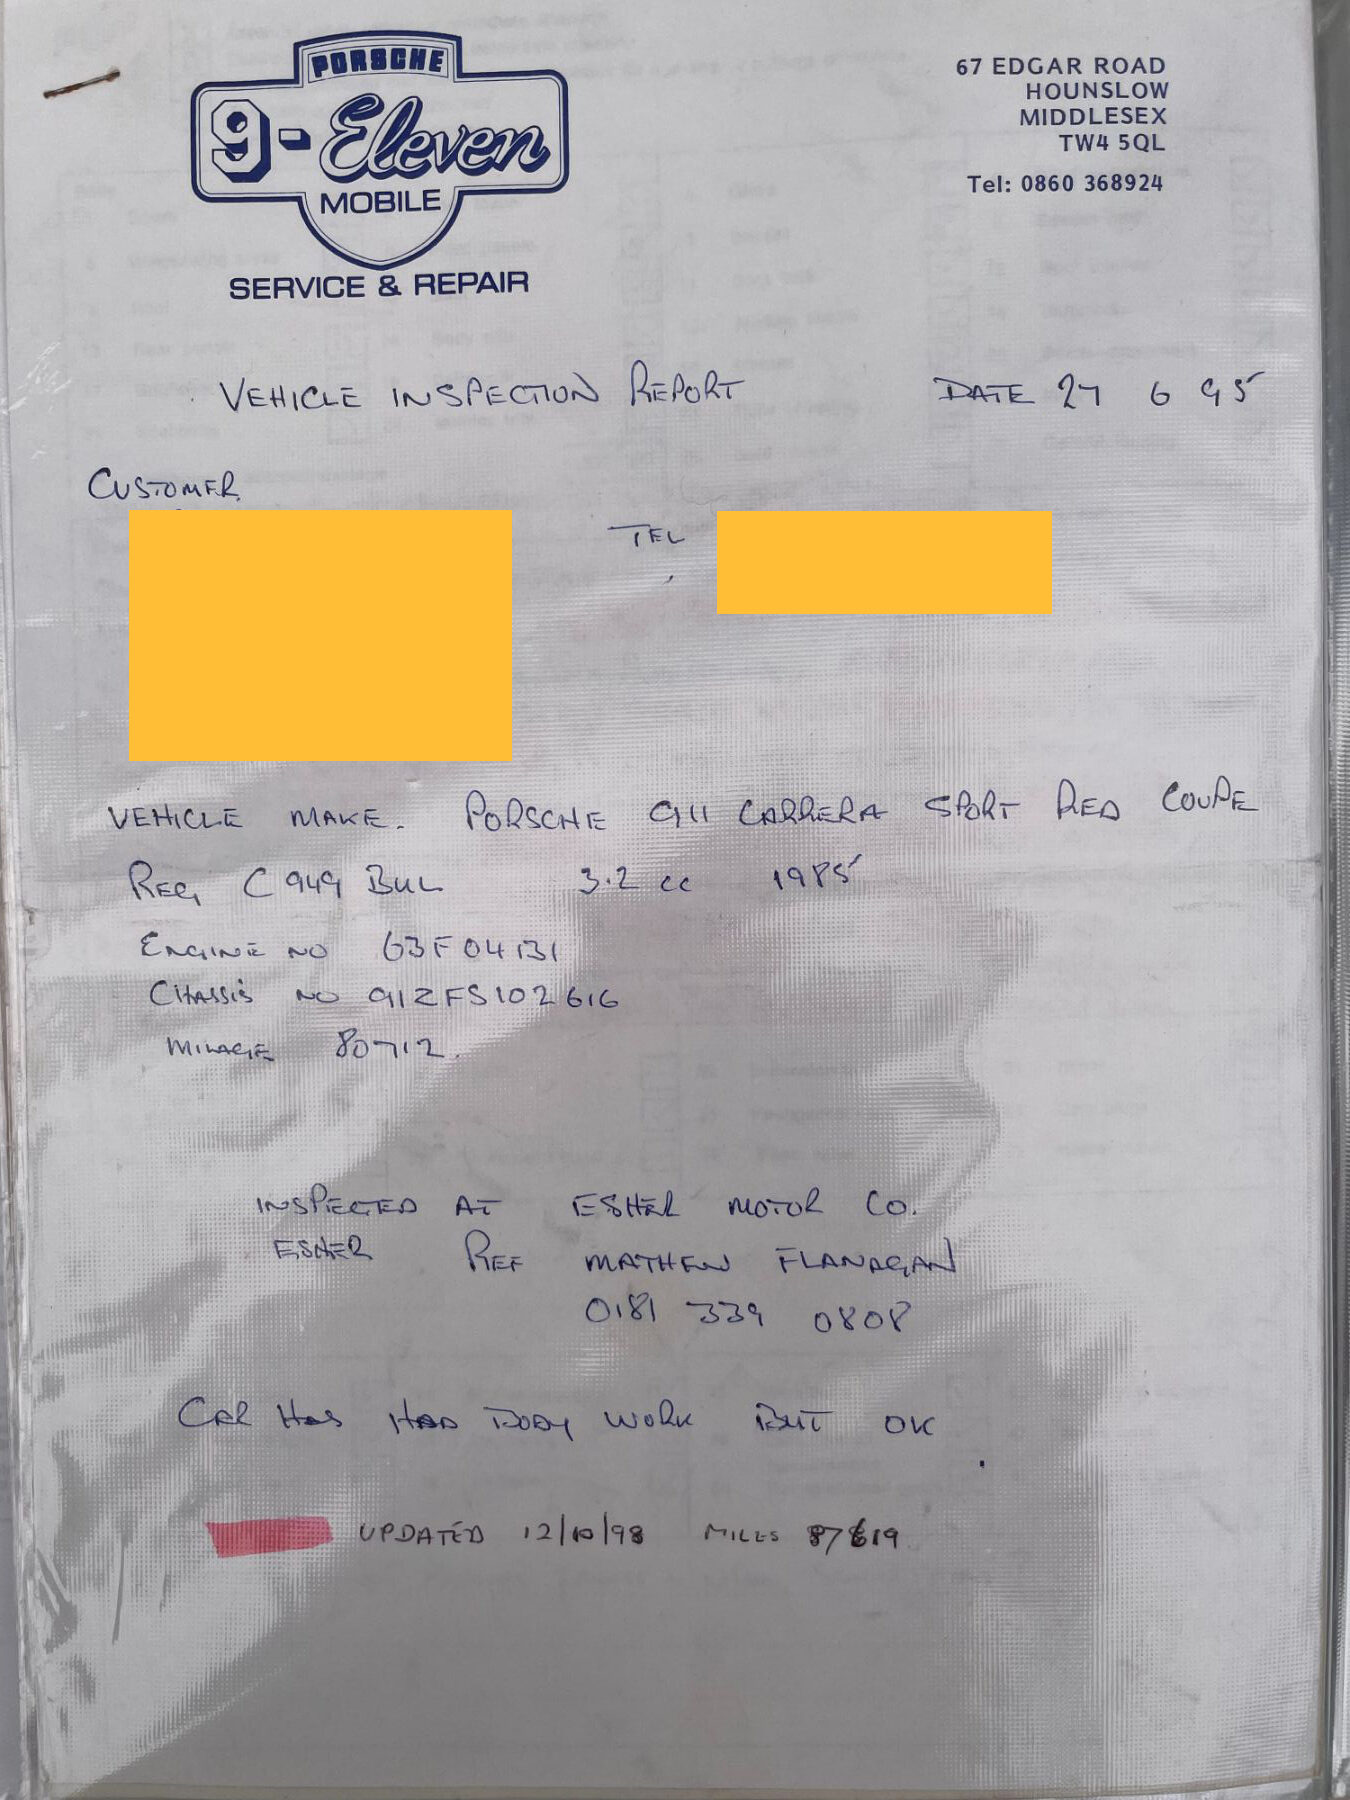 PORSCHE
9-Eleven
MOBILE
SERVICE & REPAIR
67 EDGAR ROAD
HOUNSLOW
MIDDLESEX
TW4 5QL
Tel: 0860 368924
VEHICLE INSPECTION REPORT DATE 27 6 95
CUSTOMER
TEL
VEHICLE MAKE. PORSCHE 911 CARRERA SPORT RED COUPE
REG C949 BUL 3.2 cc 1985
ENGINE NO 63F04131
CHASSIS NO 91ZFS102616
MILAGE 80712.
INSPECTED AT ESHER MOTOR CO.
ESHER REF MATHEW FLANAGAN
0181 339 0808
CAR HAS HAD BODY WORK BUT OK
UPDATED 12/10/98 MILES 87619